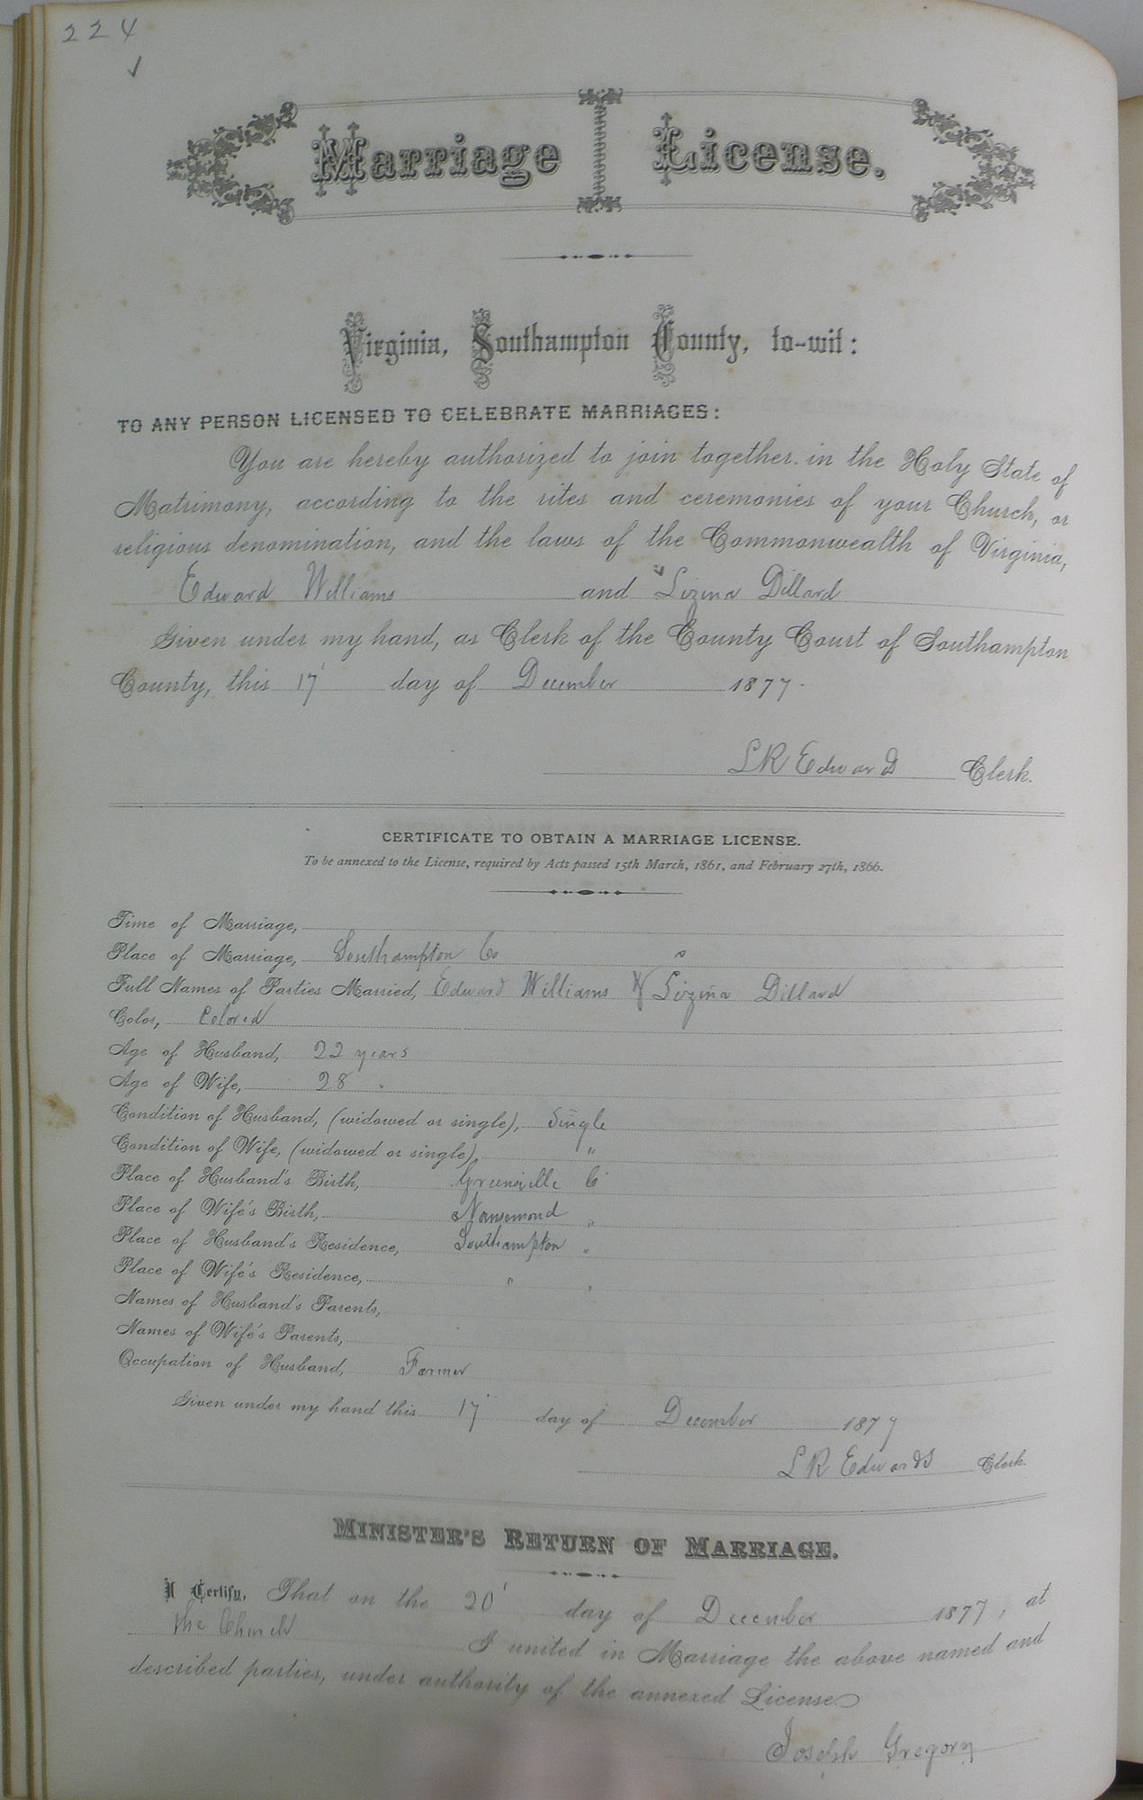 224
✓
Marriage License.
Virginia, Southampton County, to-wit:
TO ANY PERSON LICENSED TO CELEBRATE MARRIAGES:
You are hereby authorized to join together in the Holy State of
Matrimony, according to the rites and ceremonies of your Church, or
religious denomination, and the laws of the Commonwealth of Virginia,
Edward Williams and Lizina Dillard
Given under my hand, as Clerk of the County Court of Southampton
County, this 17' day of December 1877.
L R Edwards Clerk.
CERTIFICATE TO OBTAIN A MARRIAGE LICENSE.
To be annexed to the License, required by Acts passed 15th March, 1861, and February 27th, 1866.
Time of Marriage,
Place of Marriage, Southampton Co
Full Names of Parties Married, Edward Williams & Lizina Dillard
Color, Colored
Age of Husband, 22 years
Age of Wife, 28 "
Condition of Husband, (widowed or single), Single
Condition of Wife, (widowed or single), "
Place of Husband's Birth, Greensville Co
Place of Wife's Birth, Nansemond "
Place of Husband's Residence, Southampton "
Place of Wife's Residence, " "
Names of Husband's Parents,
Names of Wife's Parents,
Occupation of Husband, Farmer
Given under my hand this 17' day of December 1877
L R Edwards Clerk.
MINISTER'S RETURN OF MARRIAGE.
I Certify, That on the 20' day of December 1877, at
the Church I united in Marriage the above named and
described parties, under authority of the annexed License
Joseph Gregory